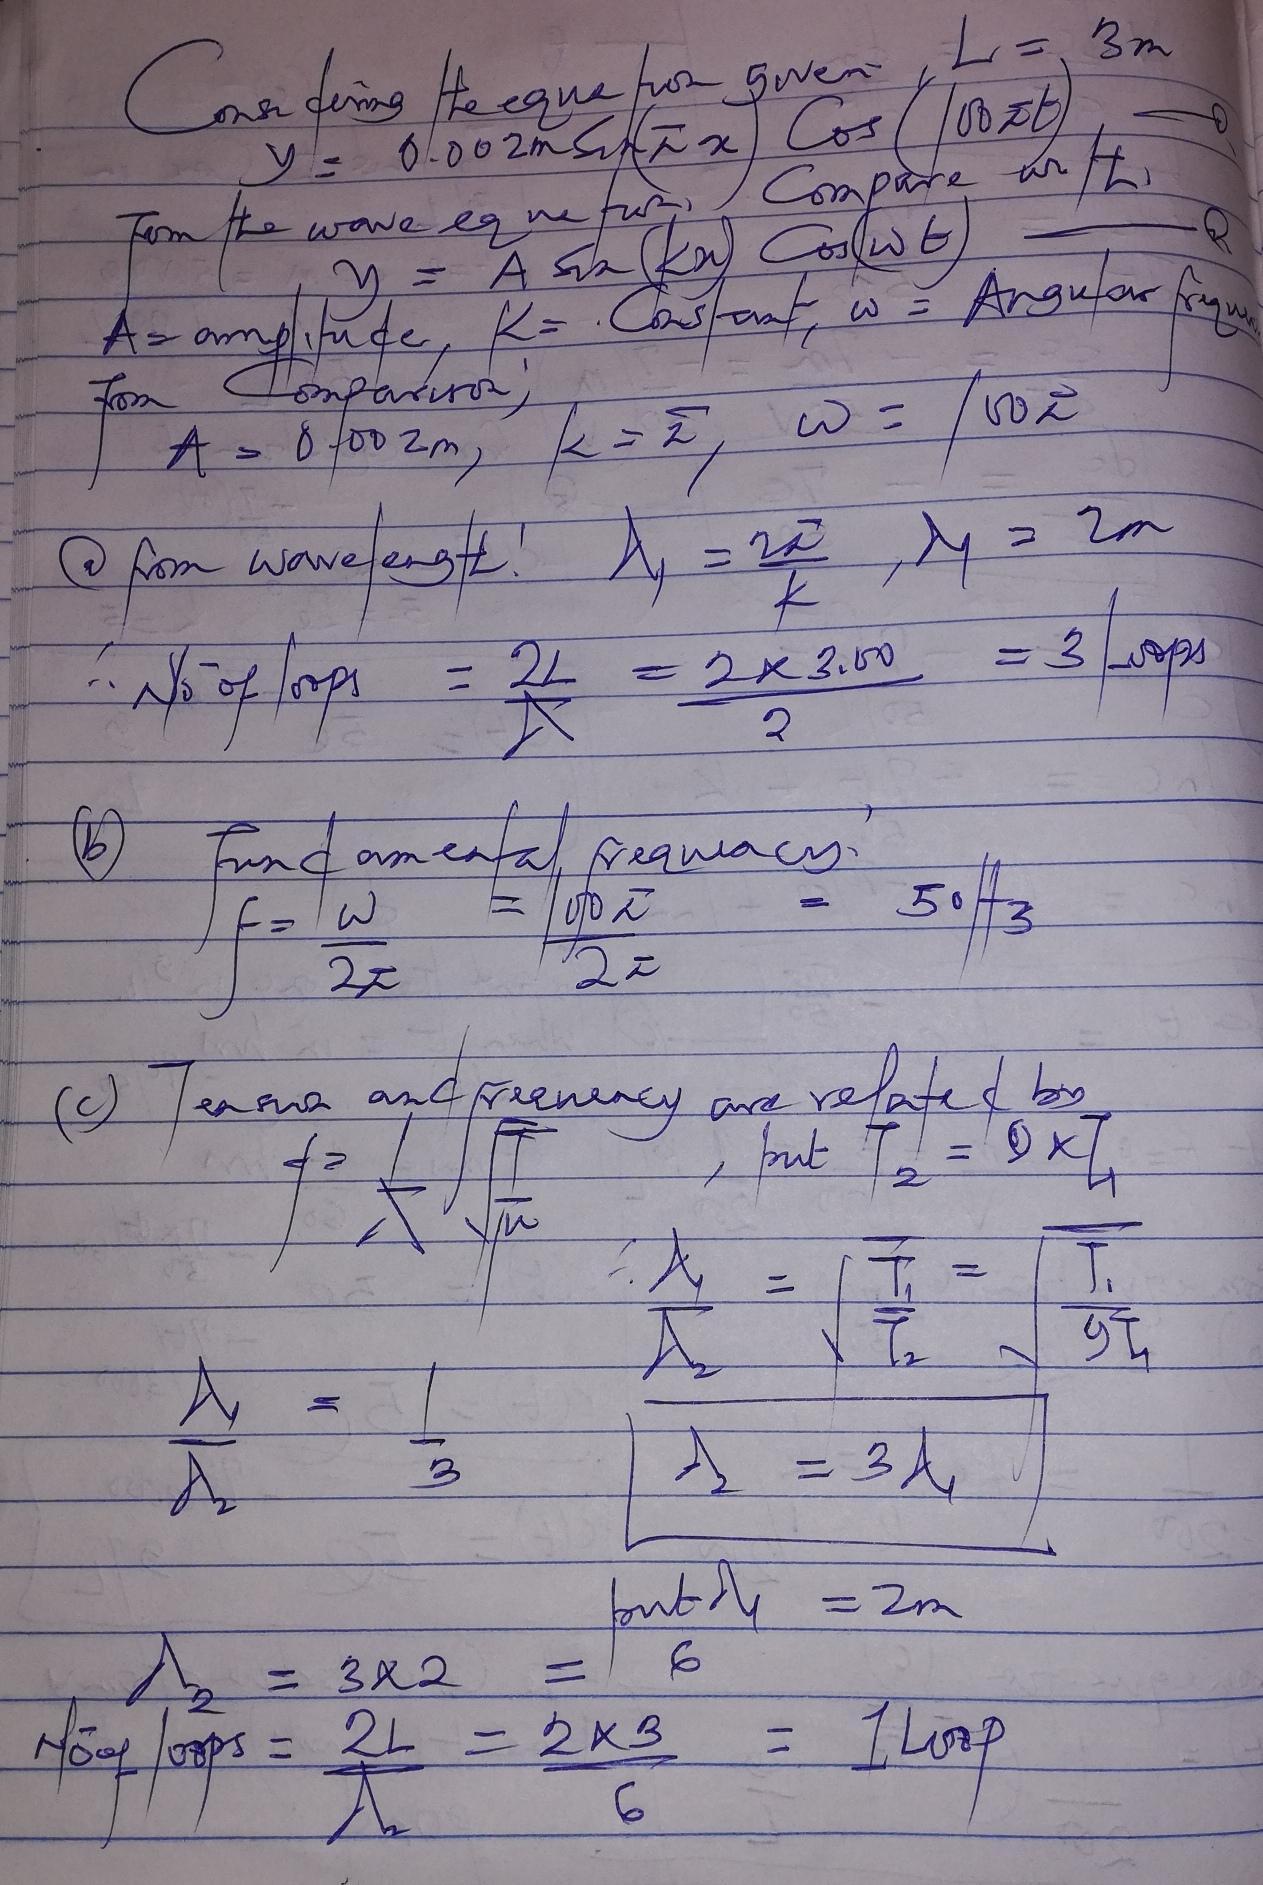 Considering the equation given, L = 3m
y = 0.002m Sin(πx) Cos(100πt) —①
From the wave equation, Compare with,
y = A Sin(kx) Cos(wt) —②
A = amplitude, K = Constant, w = Angular frequen
From Comparison;
A = 0.002m, k = π, w = 100π
(a) from wavelength: λ₁ = 2π/k, λ₁ = 2m
∴ No of loops = 2L/λ = 2 x 3.00/2 = 3 Loops
(b) Fundamental frequency:
f = w/2π = 100π/2π = 50Hz
(c) Tension and frequency are related by
f = 1/λ √(T/μ), put T₂ = 9 x T₁
∴ λ₁/λ₂ = √(T₁/T₂) = √(T₁/9T₁)
λ₁/λ₂ = 1/3 λ₂ = 3λ₁
put λ₁ = 2m
λ₂ = 3x2 = 6
No of loops = 2L/λ₂ = 2x3/6 = 1 Loop